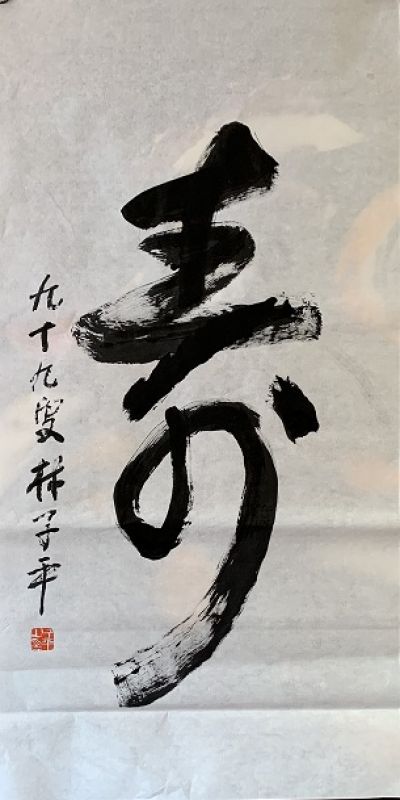 寿
九十九叟林子平